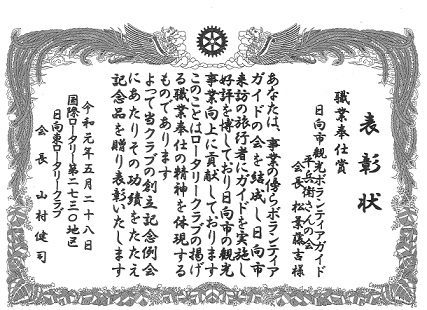 表彰状
職業奉仕賞
日向市観光ボランティアガイド
平兵衛さんの会
会長 松葉藤吉様
あなたは、事業の傍らボランティア
ガイドの会を結成し日向市
来訪の旅行者にガイドを実施し
好評を博しており日向市の観光
事業向上に貢献しております
このことはロータリークラブの掲げ
る職業奉仕の精神を体現する
ものであります
よって当クラブの創立記念例会
にあたりその功績をたたえ
記念品を贈り表彰いたします
令和元年五月二十八日
国際ロータリー第二七三〇地区
日向東ロータリークラブ
会長 山村健司